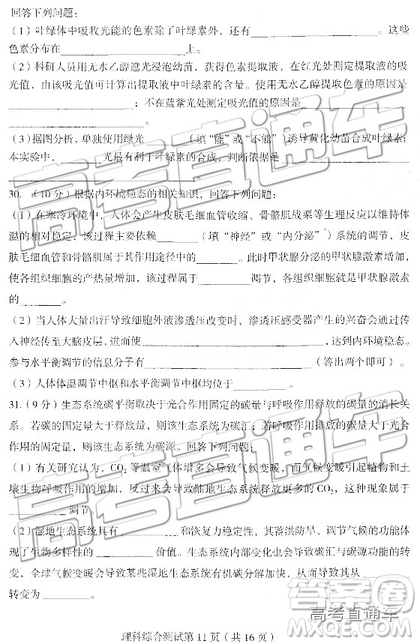 回答下列问题：
（1）叶绿体中吸收光能的色素除了叶绿素外，还有________。这些
色素分布在________上。
（2）科研人员用无水乙醇遮光浸泡幼苗，获得色素提取液，在红光处测定其吸
光值，由该吸光值可计算出提取液中叶绿素的含量。使用无水乙醇提取色素的原因是
________；不在蓝紫光处测定吸光值的原因是
________。
（3）据图分析，单独使用绿光________（填“能”或“不能”）诱导黄化幼苗合成叶绿素；
本实验中，________光最有利于叶绿素的合成，判断依据是________。
30.（10分）根据内环境稳态的相关知识，回答下列问题：
（1）在寒冷环境中，人体会产生皮肤毛细血管收缩、骨骼肌战栗等生理反应以维持体
温的相对稳定，该过程属于________（填“神经”或“内分泌”）系统的调节，皮
肤毛细血管和骨骼肌属于其作用途径中的________。此时甲状腺分泌的甲状腺激素增加，
使各组织细胞的产热量增加，该过程属于________调节，各组织细胞就是甲状腺激素
的________。
（2）当人体大量出汗导致细胞外液渗透压改变时，渗透压感受器产生的兴奋会通过传
入神经传至大脑皮层，进而使________，达到内环境稳态。
参与水平衡调节的信息分子有________（答出两个即可）。
（3）人体体温调节中枢和水平衡调节中枢均位于________。
31.（9分）生态系统碳平衡取决于光合作用固定的碳量与呼吸作用释放的碳量的消长关
系。若碳的固定量大于释放量，则该生态系统为碳汇；若呼吸作用释放的碳量大于光合
作用的固定量，则该生态系统为碳源。回答下列问题：
（1）有关研究认为，CO₂等温室气体增多会导致气候变暖，而气候变暖引起植物和土
壤生物呼吸作用增加，反过来会导致陆地生态系统CO₂的释放增加，这种现象属于
________调节。
（2）湿地生态系统具有________和恢复力稳定性，其蓄洪防旱、调节气候的功能体
现了生物多样性的________价值。生态系统内部变化也会导致碳汇与碳源功能的转
变，全球气候变暖会导致某些湿地生态系统有机碳分解加快，从而导致其从________
转变为________。
理科综合测试第11页（共16页）
高考直通车
高考直通车
高考直通车
高考直通车